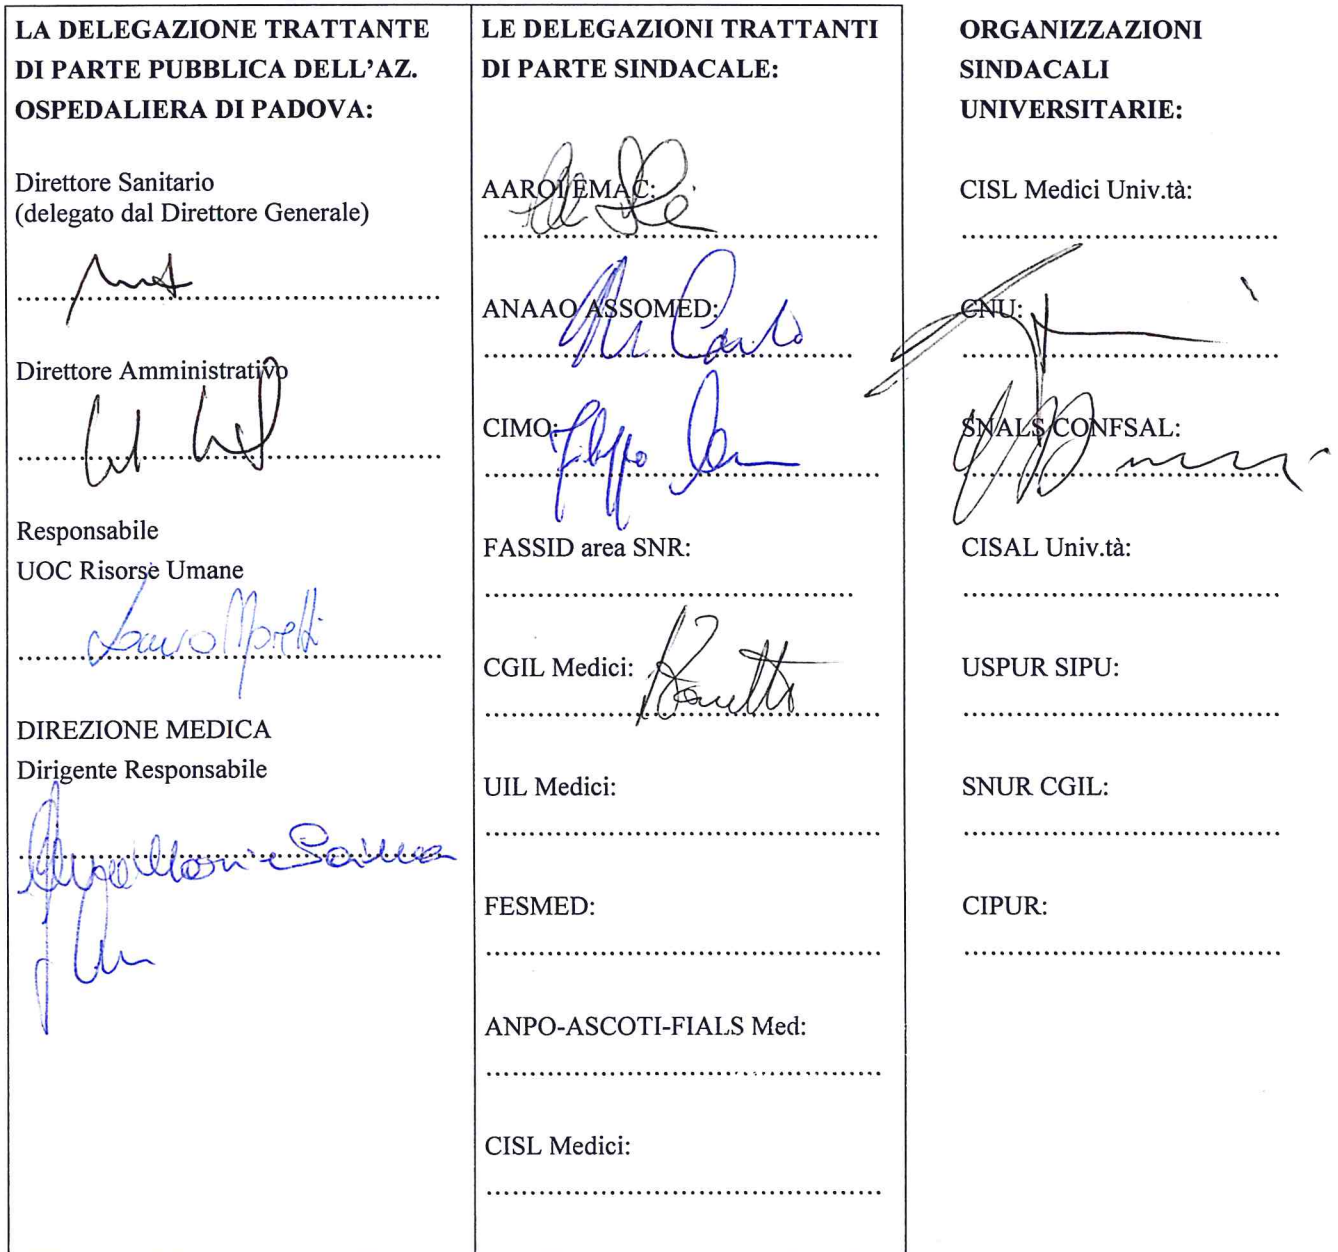 LA DELEGAZIONE TRATTANTE
DI PARTE PUBBLICA DELL'AZ.
OSPEDALIERA DI PADOVA:
Direttore Sanitario
(delegato dal Direttore Generale)
Direttore Amministrativo
Responsabile
UOC Risorse Umane
DIREZIONE MEDICA
Dirigente Responsabile
LE DELEGAZIONI TRATTANTI
DI PARTE SINDACALE:
AAROI EMAC:
ANAAO ASSOMED:
CIMO:
Filippo
FASSID area SNR:
CGIL Medici:
UIL Medici:
FESMED:
ANPO-ASCOTI-FIALS Med:
CISL Medici:
ORGANIZZAZIONI
SINDACALI
UNIVERSITARIE:
CISL Medici Univ.tà:
CNU:
SNALS CONFSAL:
CISAL Univ.tà:
USPUR SIPU:
SNUR CGIL:
CIPUR: